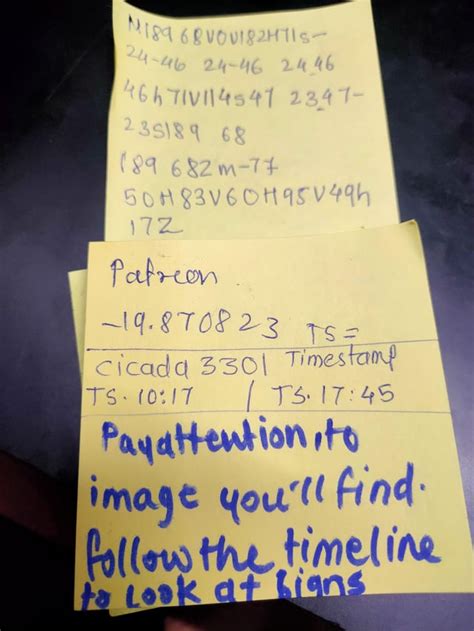 N189 68V0V182H71s-
24-46 24-46 24,46
46h71V114s47 23,47-
235189 68
189 682m-77
50H83V60H95V49h
17Z
Patreon
-19.870823 TS=
cicada 3301 Timestamp
TS. 10:17 | TS. 17:45
Pay attention, to
image you'll find.
follow the timeline
to Look at signs